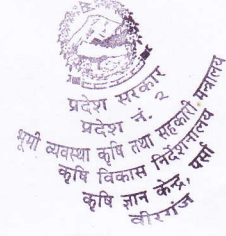 प्रदेश सरकार
प्रदेश नं. २
भूमी व्यवस्था कृषि तथा सहकारी मन्त्रालय
कृषि विकास निर्देशनालय
कृषि ज्ञान केन्द्र, पर्सा
वीरगंज